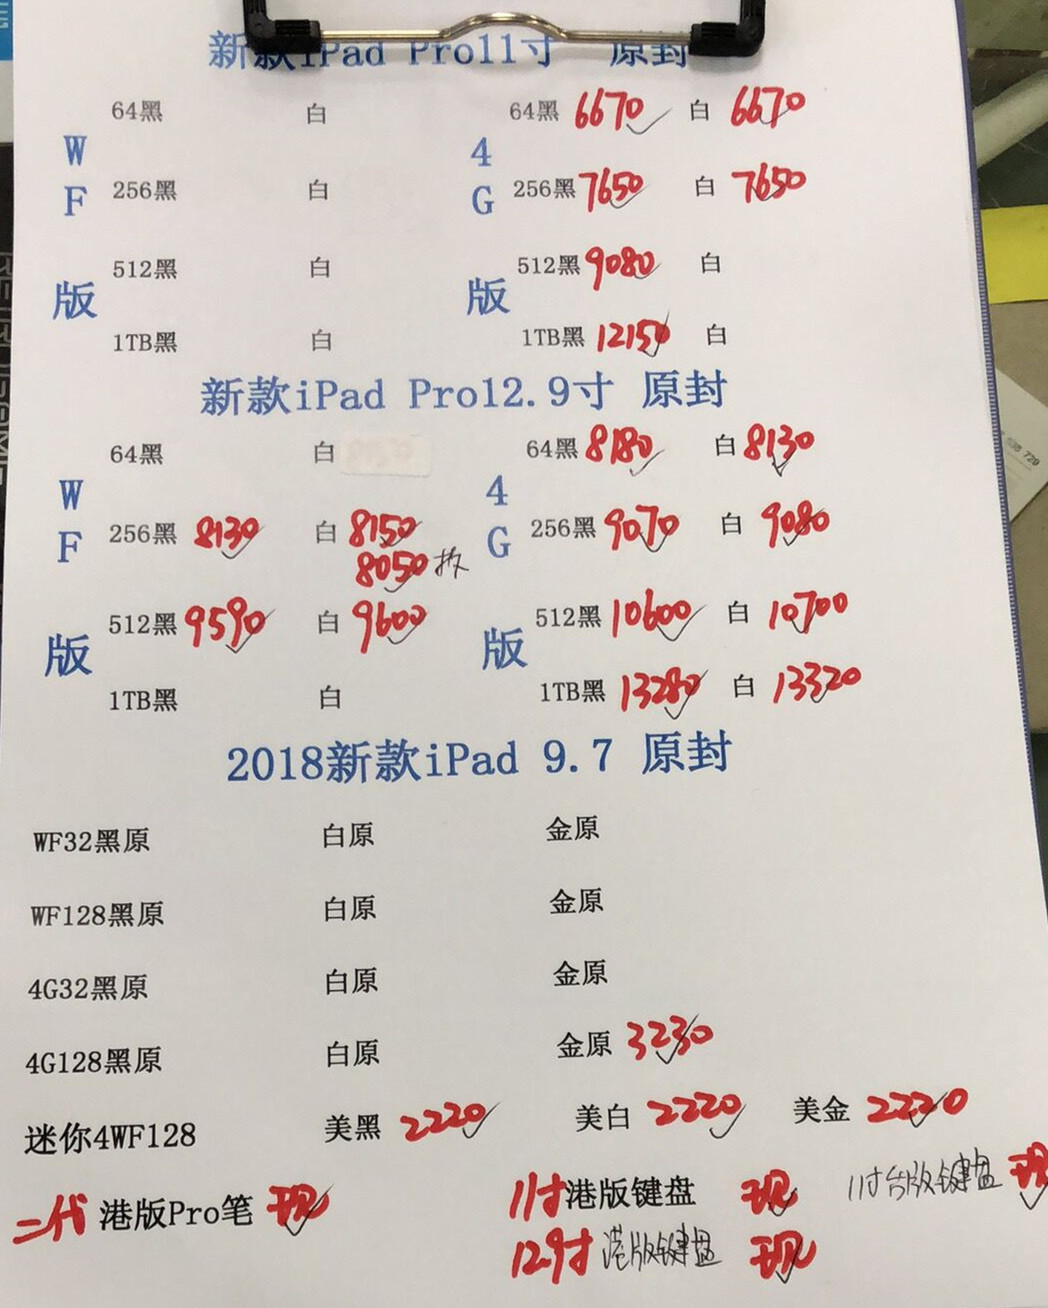 新款iPad Pro11寸 原封
64黑 白 64黑 6670 白 6670
W 4
F 256黑 白 G 256黑 7650 白 7650
512黑 白 512黑 9080 白
版 版
1TB黑 白 1TB黑 12150 白
新款iPad Pro12.9寸 原封
64黑 白 64黑 8180 白 8130
W 4
F 256黑 8130 白 8150 G 256黑 9070 白 9080
8050
512黑 9590 白 9600 512黑 10600 白 10700
版 版
1TB黑 白 1TB黑 13280 白 13320
2018新款iPad 9.7 原封
WF32黑原 白原 金原
WF128黑原 白原 金原
4G32黑原 白原 金原
4G128黑原 白原 金原 3230
迷你4WF128 美黑 2220 美白 2220 美金 2220
二代 港版Pro笔 现 11寸港版键盘 现 11寸台版键盘 现
12.9寸 港版键盘 现